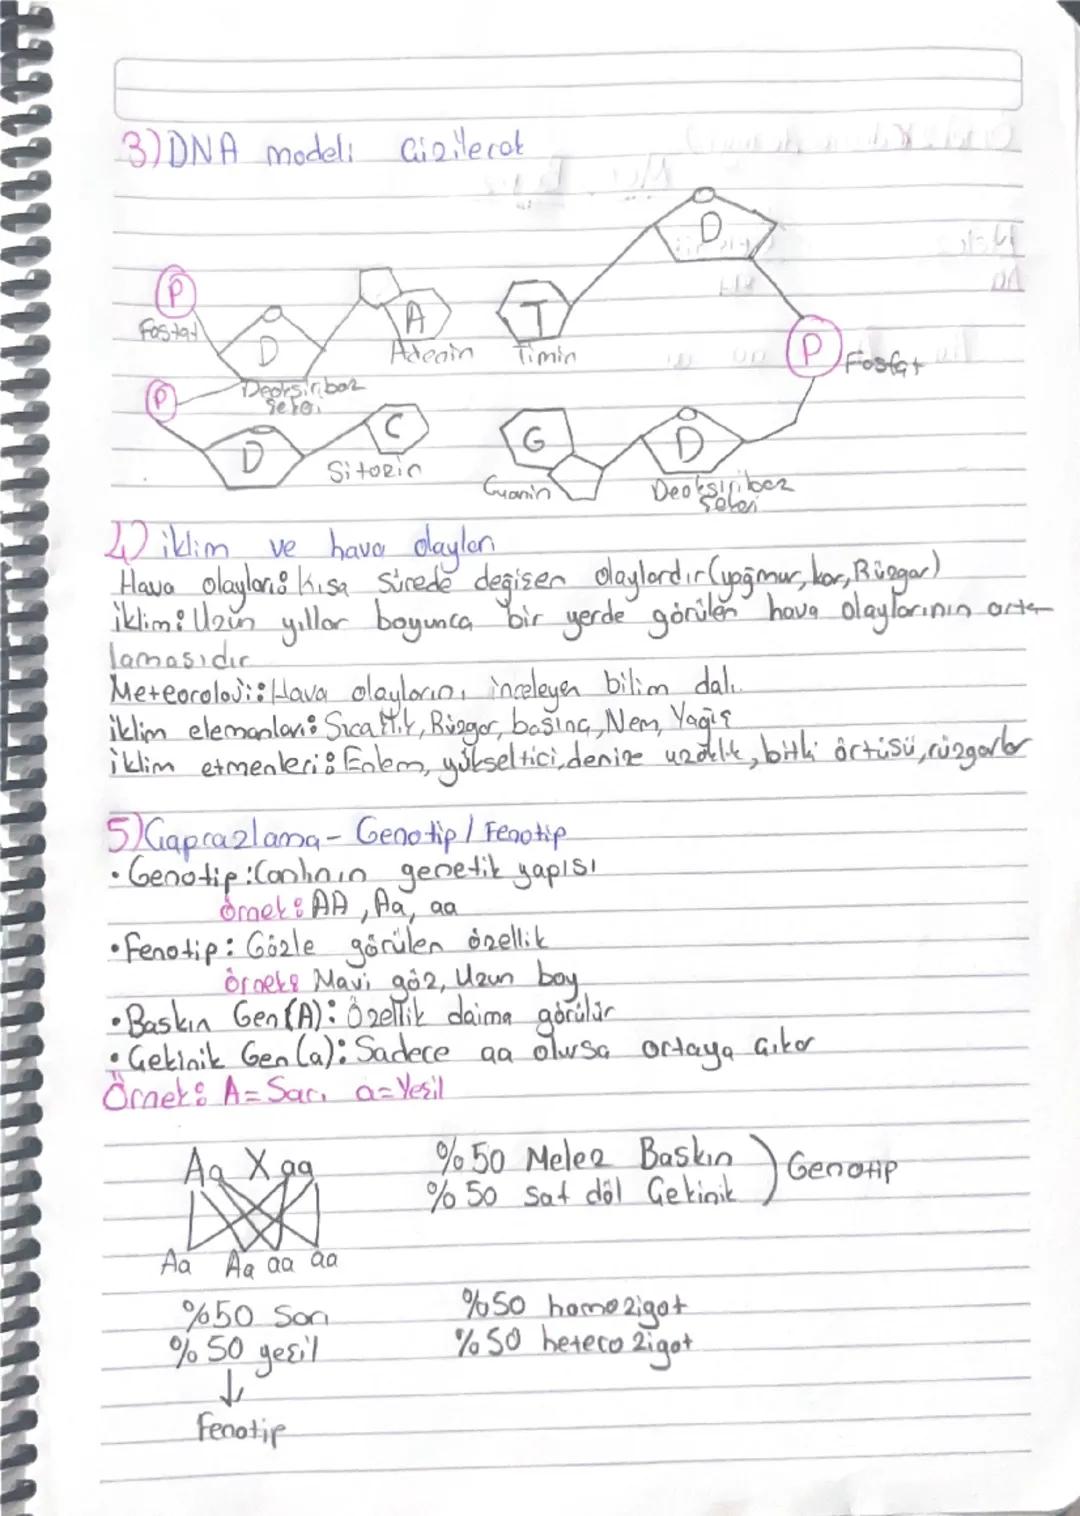 3) DNA modeli Çizilecek
D
P
Fosfat
A
T
D
Adenin
Timin
P
Fosfat
Deoksiriboz
şekeri
P
C
G
D
D
Sitozin
Guanin
Deoksiriboz
şekeri
4) iklim ve hava olayları
Hava olayları: Kısa Sürede değişen olaylardır (yağmur, kar, Rüzgar)
iklim: Uzun yıllar boyunca bir yerde görülen hava olaylarının orta
lamasıdır
Meteoroloji: Hava olaylarını inceleyen bilim dalı.
iklim elemanları: Sıcaklık, Rüzgar, basınç, Nem, Yağış
iklim etmenleri: Enlem, yükseltici, denize uzaklık, bitki örtüsü, rüzgarlar
5) Çaprazlama - Genotip / Fenotip
• Genotip: Canlının genetik yapısı
örnek: AA, Aa, aa
• Fenotip: Gözle görülen özellik
örnek: Mavi göz, Uzun boy
• Baskın Gen (A): Özellik daima görülür
• Çekinik Gen (a): Sadece aa olursa ortaya çıkar
Örnek: A = Sarı a = Yeşil
Aa X aa %50 Melez Baskın ) Genotip
%50 Saf döl Çekinik
Aa Aa aa aa
%50 Sarı %50 homozigot
%50 yeşil %50 heterozigot
↓
Fenotip